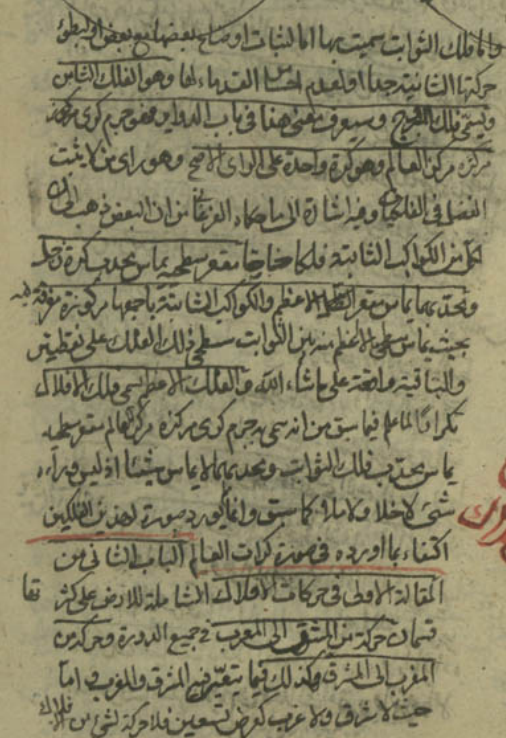 واما فلك الثوابت سميت بها اما لثبات اوضاع بعضها مع بعض او لبطوء
حركتها الثانية جدا او لعدم احساس القدماء لها وهو الفلك الثامن
ويسمى فلك البروج وسيعرف معنى هذا في باب الدواير فهو جرم كرى مركزه
مركزه مركز العالم وهو كرة واحدة على الراى الاصح وهو راى من لا يثبت
الفضل في الفلكيات وفيه اشارة الى ما من ان البعض ذهب الى ان
لكل من الكواكب الثابتة فلكا خاصا مقعر سطحيه يماس محدب كرة زحل
ومحدبهما يماس مقعر الفلك الاعظم والكواكب الثابتة باجمعها مركوزة مغرقة فيه
بحيث يماس سطح الاعظم منه من الثوابت سطحى ذلك الفلك على نقطتين
والباقية واقعة على ماشاء الله والفلك الاعظم سمى فلك الافلاك
تكرارا لما علم فيما سبق من انه سمى به جرم كرى مركزه مركز العالم مقعر سطحيه
يماس محدب فلك الثوابت ومحدبهما لا يماس شيئا اذ ليس وراءه
شئ لا خلا ولا ملا كما سبق وانما لم يورد صورة لهذين الفلكين
اكتفاء بما اورده في صورة كرات العالم الباب الثانى من
المقالة الاولى في حركات الافلاك الشاملة للارض على كثرتها
قسمان حركة من المشرق الى المغرب في جميع الدورة وحركة من
المغرب الى المشرق وكذلك فيما يتعين فيه المشرق والمغرب اما
حيث لا شرق ولا غرب كعرض تسعين فلا حركة لشئ من الافلاك